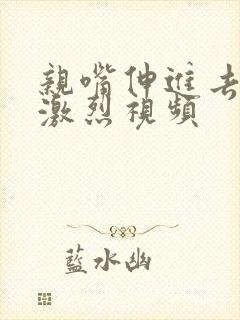 親嘴伸進去
激烈視頻
藍水幽